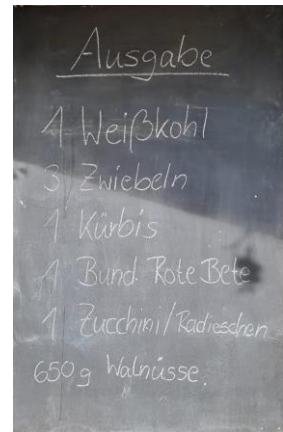 Ausgabe
1 Weißkohl
3 Zwiebeln
1 Kürbis
1 Bund Rote Bete
1 Zucchini/Radieschen
650g Walnüsse.